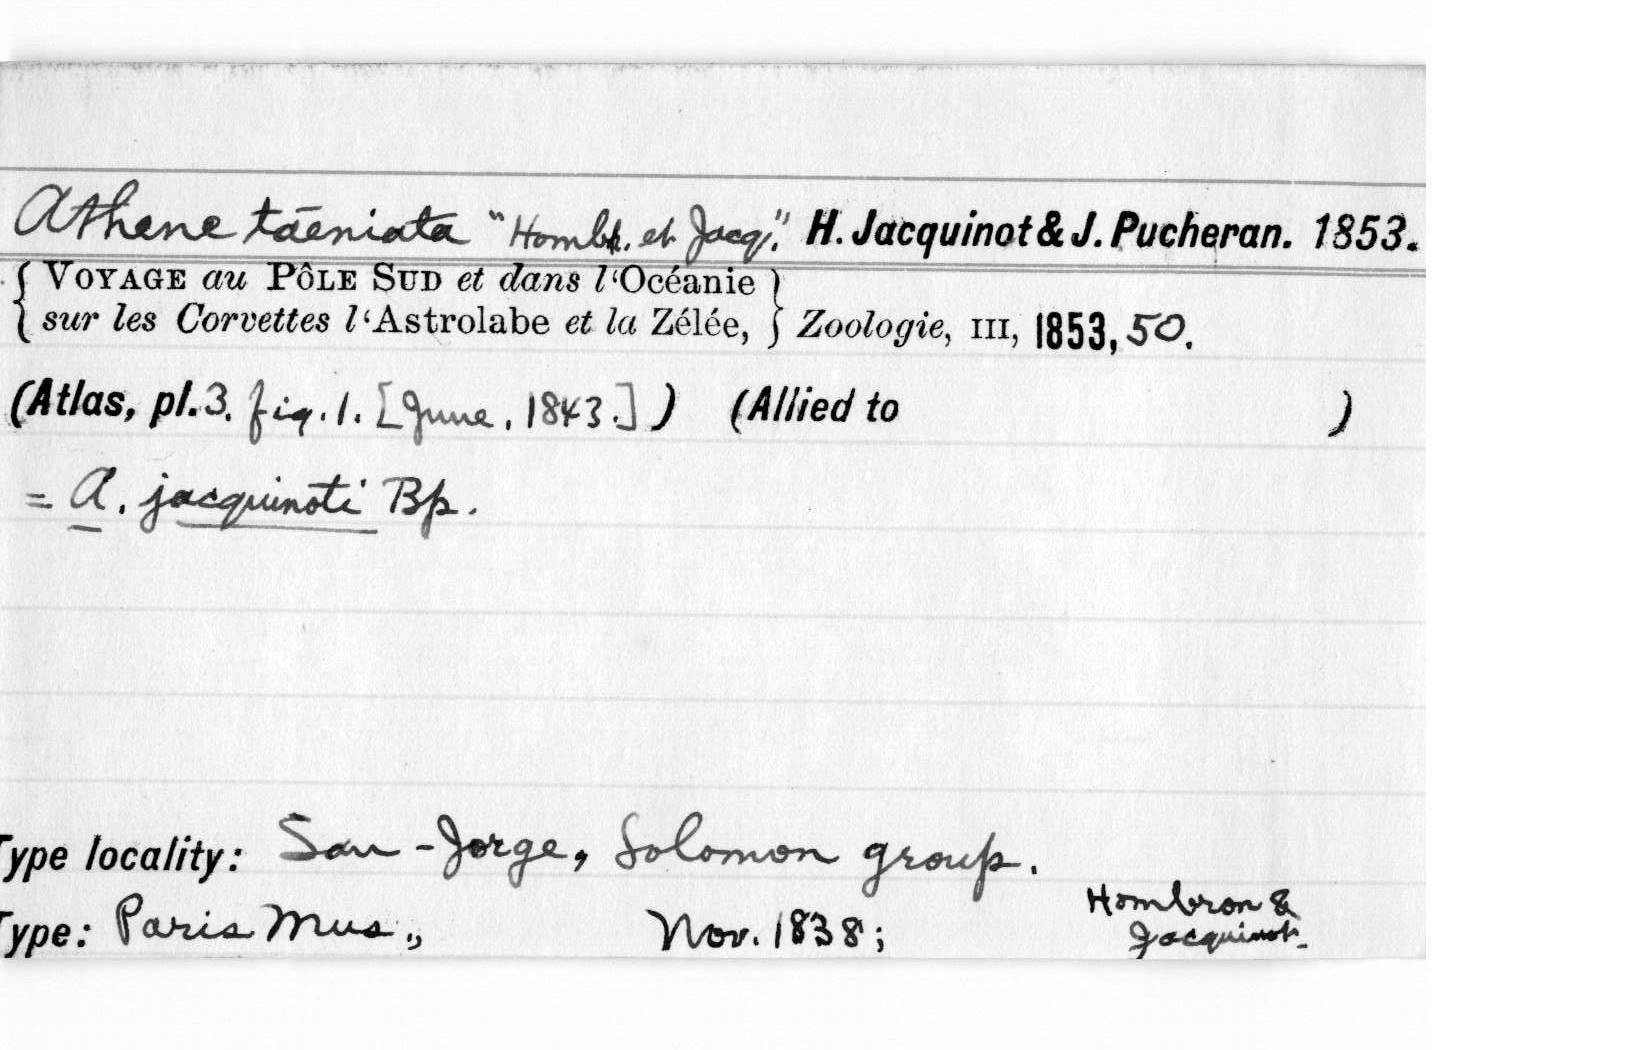 Athene taeniata "Hombr. et Jacq." H. Jacquinot & J. Pucheran. 1853.
{ VOYAGE au PÔLE SUD et dans l'Océanie }
{ sur les Corvettes l'Astrolabe et la Zélée, } Zoologie, III, 1853, 50.
(Atlas, pl. 3. fig. 1. [June, 1843.] ) (Allied to )
= A. jacquinoti Bp.
Type locality: San-Jorge, Solomon group.
Type: Paris Mus., Nov. 1838; Hombron &
Jacquinot.